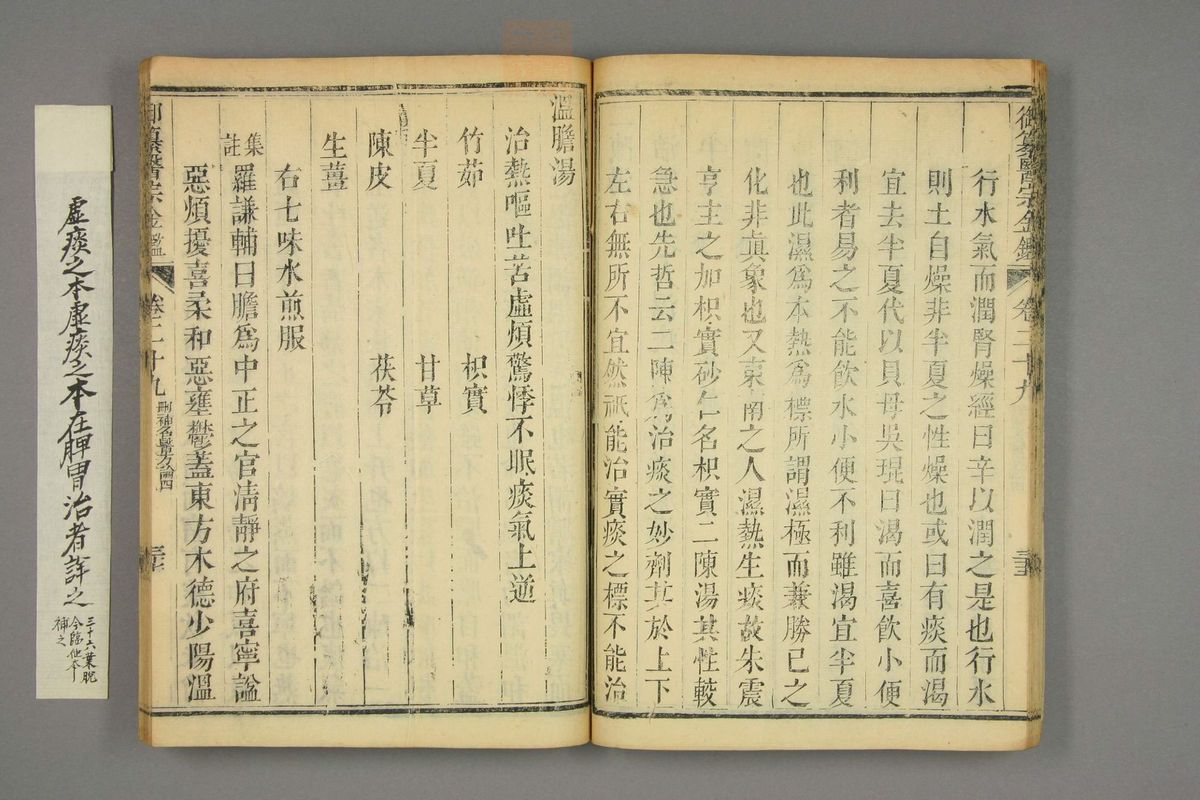 御纂醫宗金鑑 卷二十九 三十五
行水氣而潤腎燥經曰辛以潤之是也行水
則土自燥非半夏之性燥也或曰有痰而渴
宜去半夏代以貝母吳琨曰渴而喜飲小便
利者易之不能飲水小便不利雖渴宜半夏
也此濕為本熱為標所謂濕極而兼勝己之
化非眞象也又東南之人濕熱生痰故朱震
亨主之加枳實砂仁名枳實二陳湯其性較
急也先哲云二陳為治痰之妙劑其於上下
左右無所不宜然祇能治實痰之標不能治
溫膽湯
治熱嘔吐苦虛煩驚悸不眠痰氣上逆
竹茹 枳實
半夏 甘草
陳皮 茯苓
生薑
右七味水煎服
集註 羅謙輔曰膽為中正之官淸靜之府喜寧謐
惡煩擾喜柔和惡壅鬱蓋東方木德少陽溫
御纂醫宗金鑑 卷二十九 刪補名醫方論四 三十七
虛痰之本虛痰之本在脾胃治者詳之
三十六葉脫
今臨他本
補之